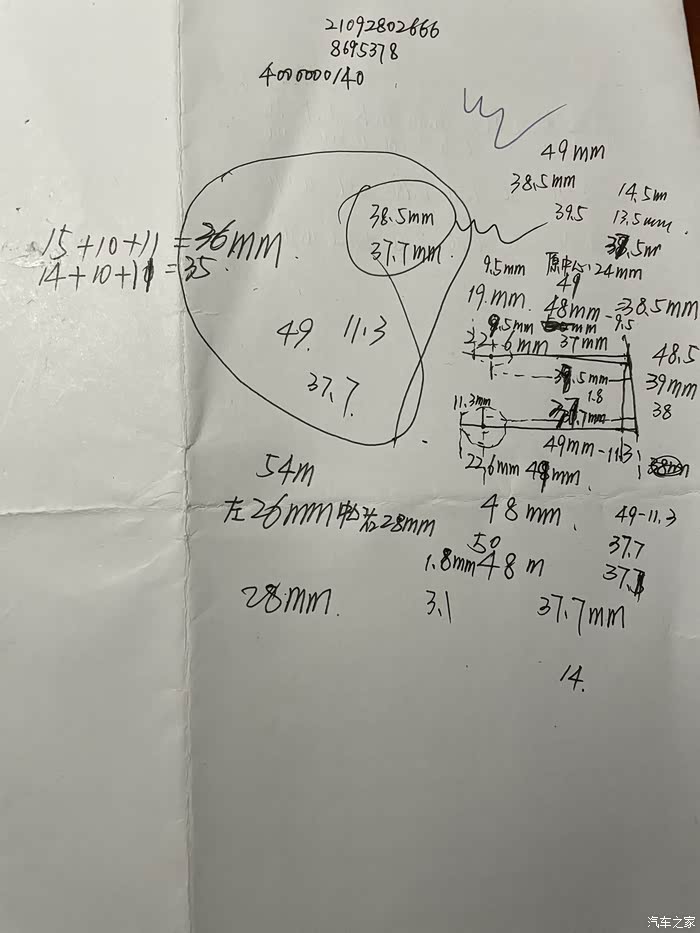 21092802666
8695378
4000000140
49mm
38.5mm
14.5m
39.5
13.5mm
38.5mm
37.7mm
15+10+11=36mm.
14+10+11=35.
9.5mm
原中心24mm
49
19.mm.
48mm-38.5mm
9.5mm
9.5
22.6mm
37mm
48.5
39mm
38
49. 11.3
37.7.
1.8
11.3mm
49mm-11.3
22.6mm
54m
左26mm
右28mm
48mm.
49-11.3
50
37.7
1.8mm48m
28mm.
3.1
37.7mm
14.
汽车之家